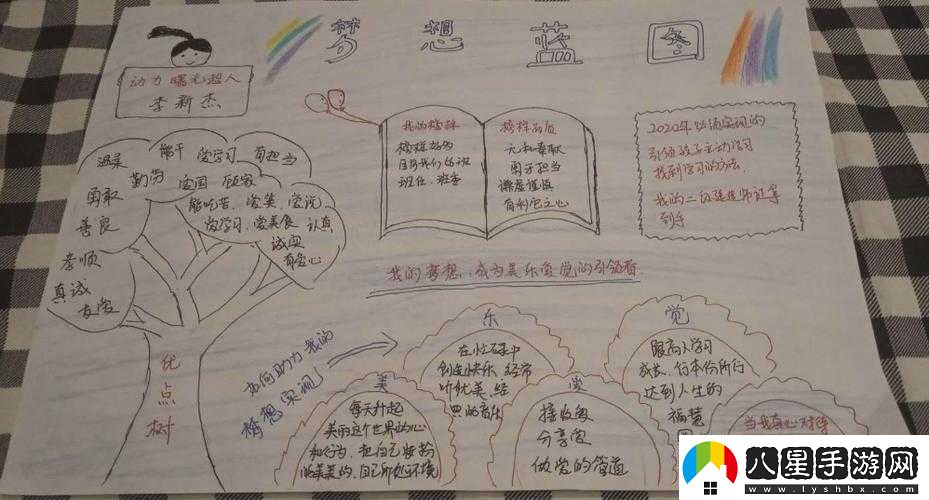 梦想蓝图
动力曙光超人
李新杰
温柔 能干 爱学习 有担当
勇敢 勤劳 爱国 顾家
善良 能吃苦、爱美、爱玩
爱学习、爱美食 认真
孝顺 诚实
真诚 有爱心
友爱
优点树
我的榜样
榜样品质
无私奉献
勇于担当
谦虚谨慎
有利他之心
2022年必须实现的
引领孩子主动学习
找到学习的方法.
我的二级建造师证拿
到手
我的梦想,成为美乐爱觉的引领者
如何助力我的
梦想实现
美
每天升起
美丽这个世界的心
和行为,把自己装扮
美美的,自己所处环境
乐
在忙碌中
创造快乐,经常
听优美、经
典的音乐
爱
接收爱
分享爱
做爱的管道
觉
跟高人学习
成长、行本份所行
达到人生的
福慧
当我真心对待
八星手游网
www.lyshbx.com